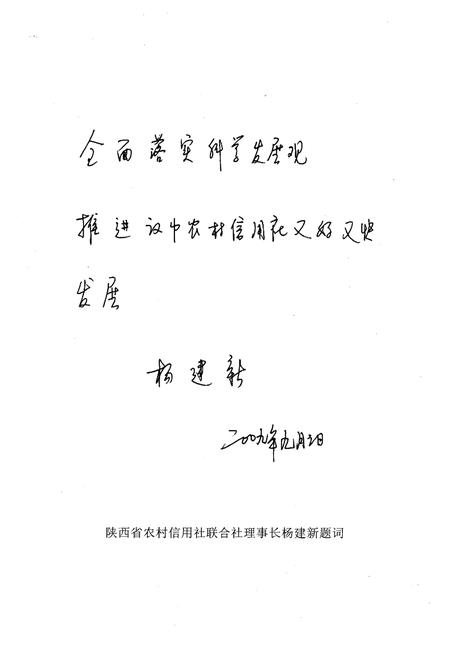 全面落实科学发展观
推进汉中农村信用社又好又快
发展
杨建新
二00九年九月三日
陕西省农村信用社联合社理事长杨建新题词